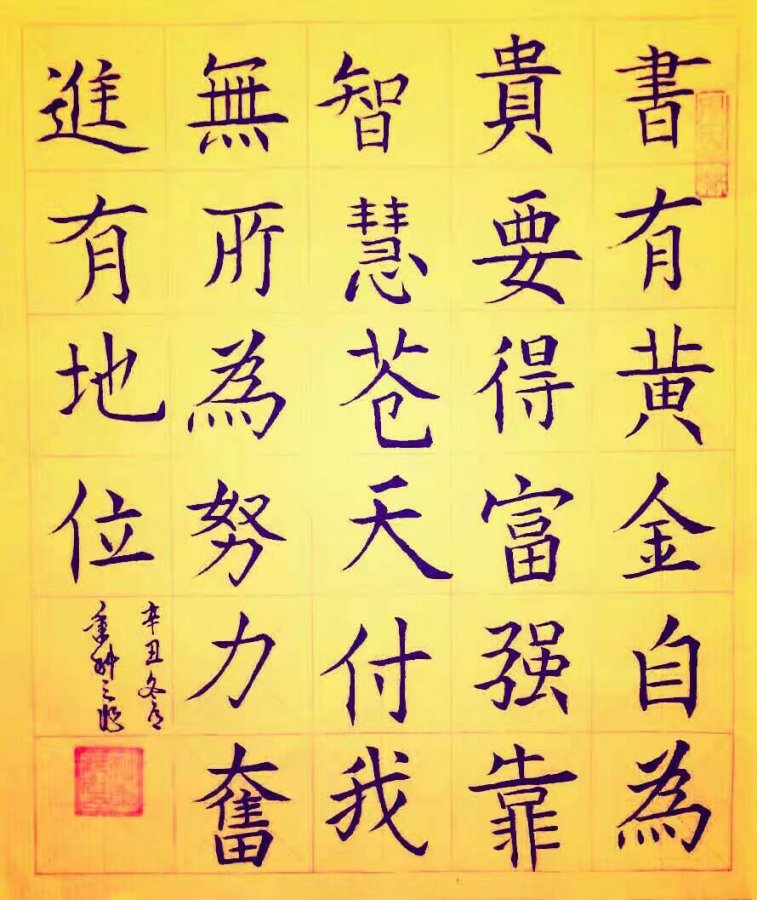 書有黃金自為
貴要得富强靠
智慧苍天付我
無所為努力奮
進有地位
辛丑冬月